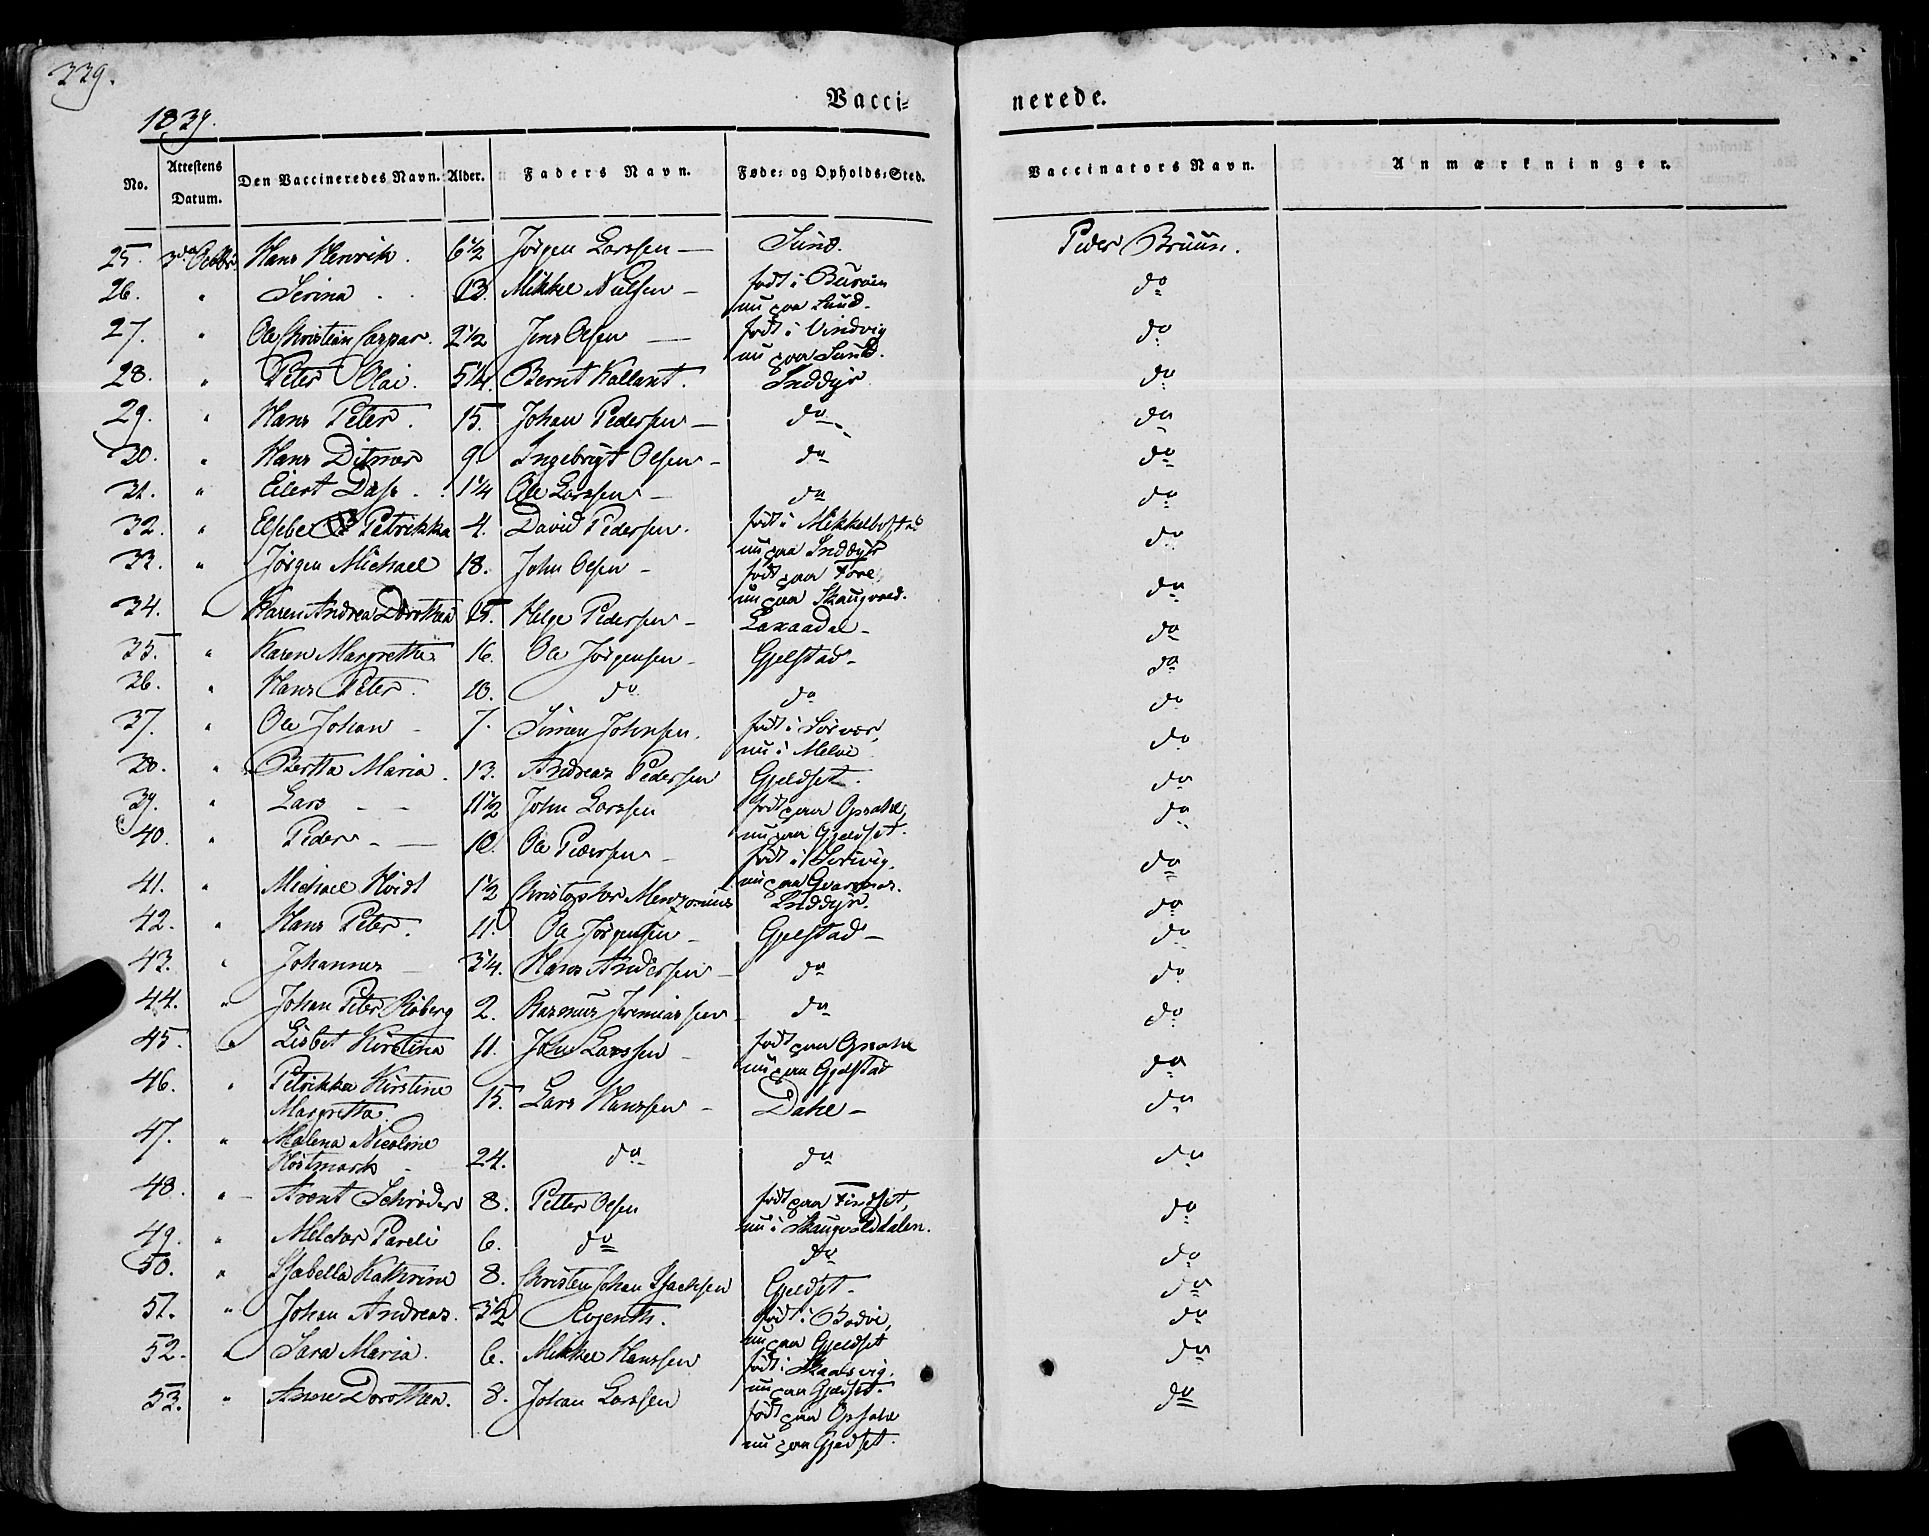 339.
Vacci= nerede.
1839.
No. Attestens Datum. Den Vaccineredes Navn. Alder. Faders Navn. Føde= og Opholds=Sted. Vaccinators Navn. Anmærkninger.
25. 3die Octbr. Hans Henrik. 6 1/2 Jørgen Larssen — Sund. Peder Bruun.
26. " Serina . . 13. Mikkel Nielsen — født i
nu paa Sund. do
27. " Ole Christian Caspar. 2 1/2 Jens Olsen — født i Vindvig
nu paa Sund. do
28. " Peter Olai. 5 1/4. Bernt Kallant. Inddyr. do
29. " Hans Peter. 15. Johan Pedersen — do do
30. " Hans Ditmar 9. Ingebrigt Olsen — do do
31. " Eilert Dass. 1 1/4 Ole Larssen — do do
32. " Elsbet Petrikka 4. David Pedersen. født i
nu paa Inddyr do
33. " Jørgen Michael 18. John Olsen — født paa Fore,
nu paa Skaugvold. do
34. " Karen Andrea Dorothea 15. Helge Pedersen — Laxaadal — do
35. " Karen Margretha 16. Ole Jørgensen — Gjelstad — do
36. " Hans Peter. 10. do do do
37. " Ole Johan — 7. Simon Johnsen. født i Sørvær,
nu i Meløe do
38. " Beretta Maria. 13. Andreas Pedersen Gjeldset. do
39. " Lars — — 11 1/2 John Larssen født paa Opsahl,
nu paa Gjeldset. do
40. " Peder — — 10. Ole Pedersen — født i
nu paa do
41. " Michael Hvidt 1 1/2 Christopher Inddyr. do
42. " Hans Peter. 11. Ole Jørgensen — Gjelstad — do
43. " Johannes — 3/4. Hans Andersen — do do
44. " Johan Peter Roberg 2. Rasmus Jeremiassen do do
45. " Lisbet Kirstina 11. John Larssen — født paa Opsahl
nu paa Gjelstad do
46. " Petrikka Kirstine
Margretha. 15. Lars Hanssen — Dahl — do
47. " Malena Nicoline
Hostmark 24. do do do
48. " Arent Schrøder 8. Petter Olsen født paa Findset,
nu i Skaugvolddalen. do
49. " Melchor Pareli 6. do do do
50. " Isabella Kathrina 8. Christen Johan Isachsen Gjeldset — do
51. " Johan Andreas. 3 1/2 Uægenth. født i Bodøe,
nu paa Gjeldset do
52. " Sara Maria. 6. Mikkel Hanssen født i Skaalsvig,
nu paa Gjeldset. do
53. " Anne Dorothea. 8. Johan Larssen født paa Opsahl
nu paa Gjeldset. do